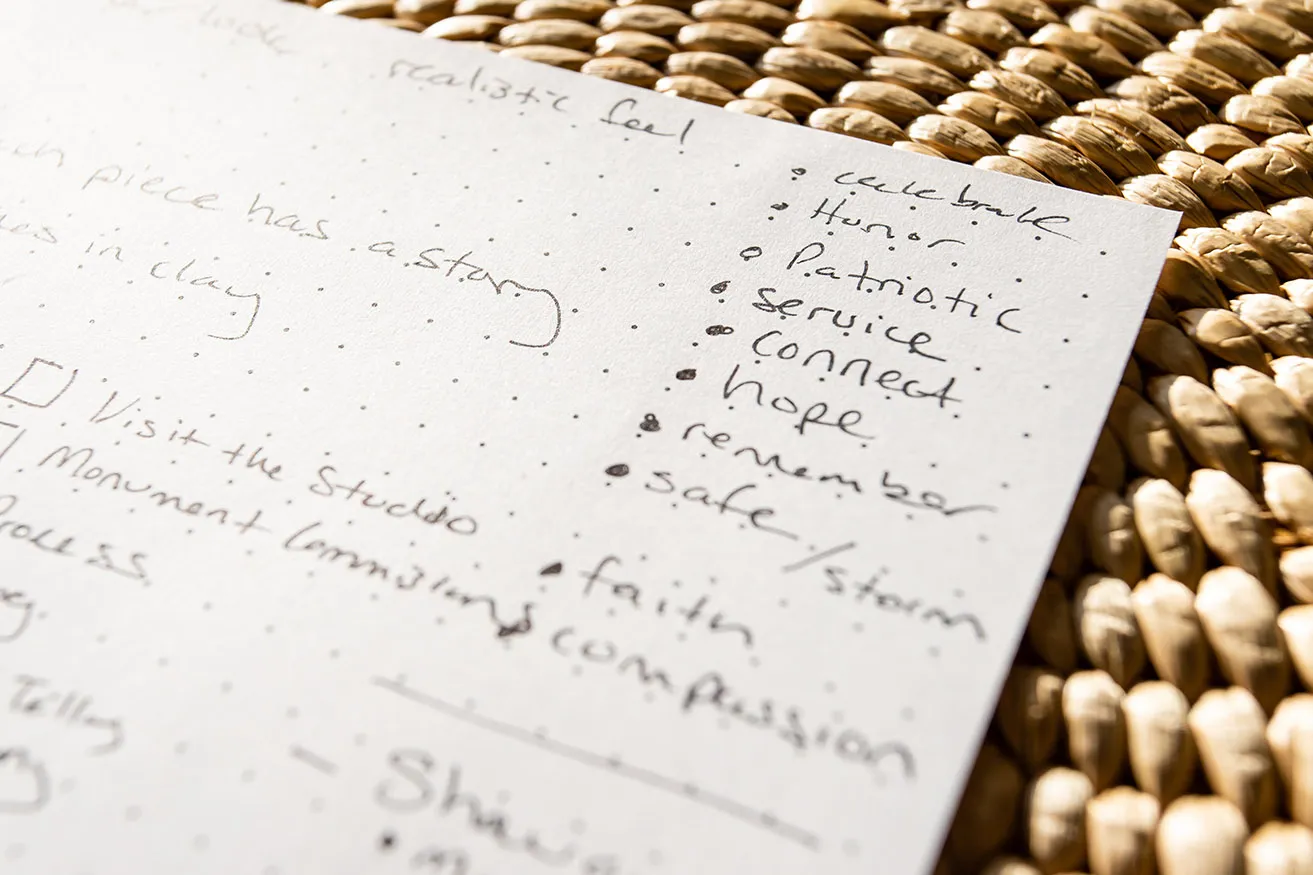 realistic feel
piece has a story
in clay
Visit the Studio
Monument Commisions
Process
Telling
• celebrate
• Honor
• Patriotic
• service
• connect
• hope
• remember
• safe/storm
• faith
• compassion